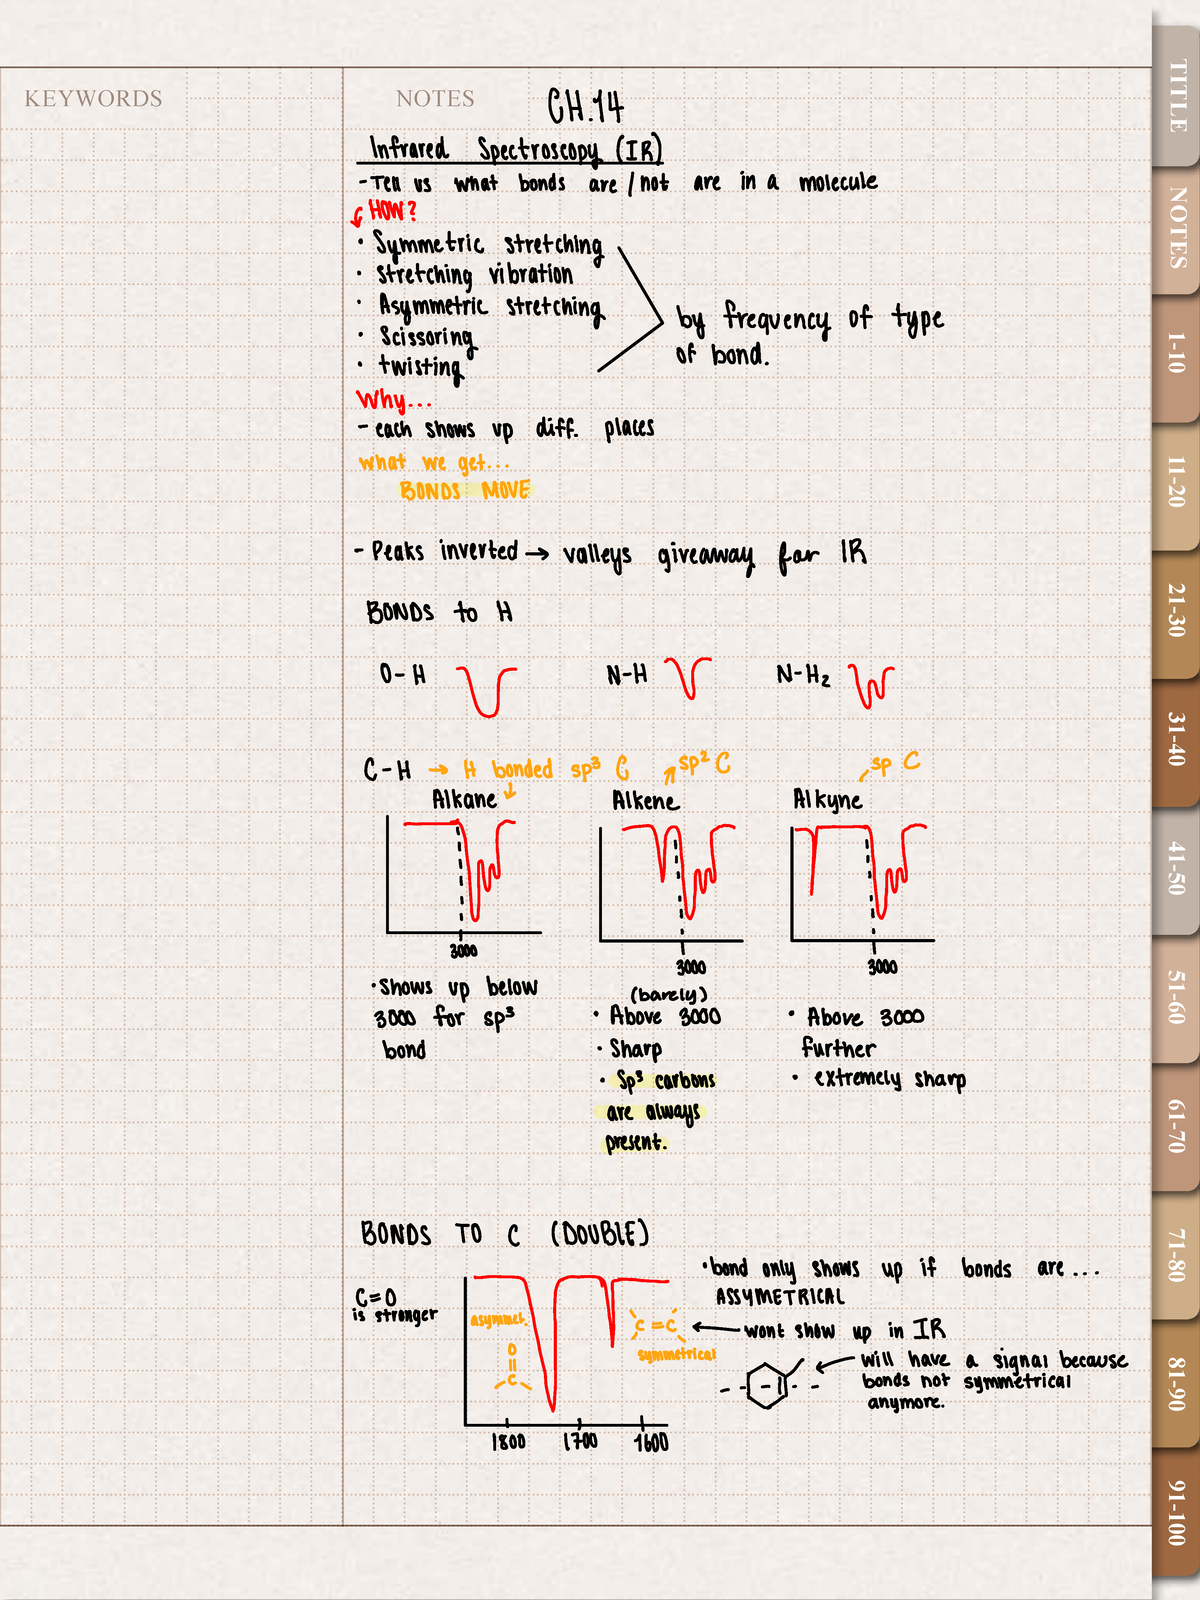 KEYWORDS
NOTES
CH.14
Infrared Spectroscopy (IR)
- Tell us what bonds are / not are in a molecule
HOW?
• Symmetric stretching
• stretching vibration
• Asymmetric stretching
• Scissoring
• twisting
by frequency of type
of bond.
Why...
- each shows up diff. places
what we get...
BONDS MOVE
- Peaks inverted → valleys giveaway for IR
BONDS to H
O-H
N-H
N-H₂
C-H → H bonded sp³ C
sp² C
sp C
Alkane
Alkene
Alkyne
3000
3000
3000
• Shows up below
3000 for sp³
bond
(barely)
• Above 3000
• Sharp
• Sp³ carbons
are always
present.
• Above 3000
further
• extremely sharp
BONDS TO C (DOUBLE)
C=O
is stronger
asymmet.
O
C
C=C
symmetrical
1800
1700
1600
• bond only shows up if bonds are...
ASSYMETRICAL
wont show up in IR
will have a signal because
bonds not symmetrical
anymore.
TITLE
NOTES
1-10
11-20
21-30
31-40
41-50
51-60
61-70
71-80
81-90
91-100